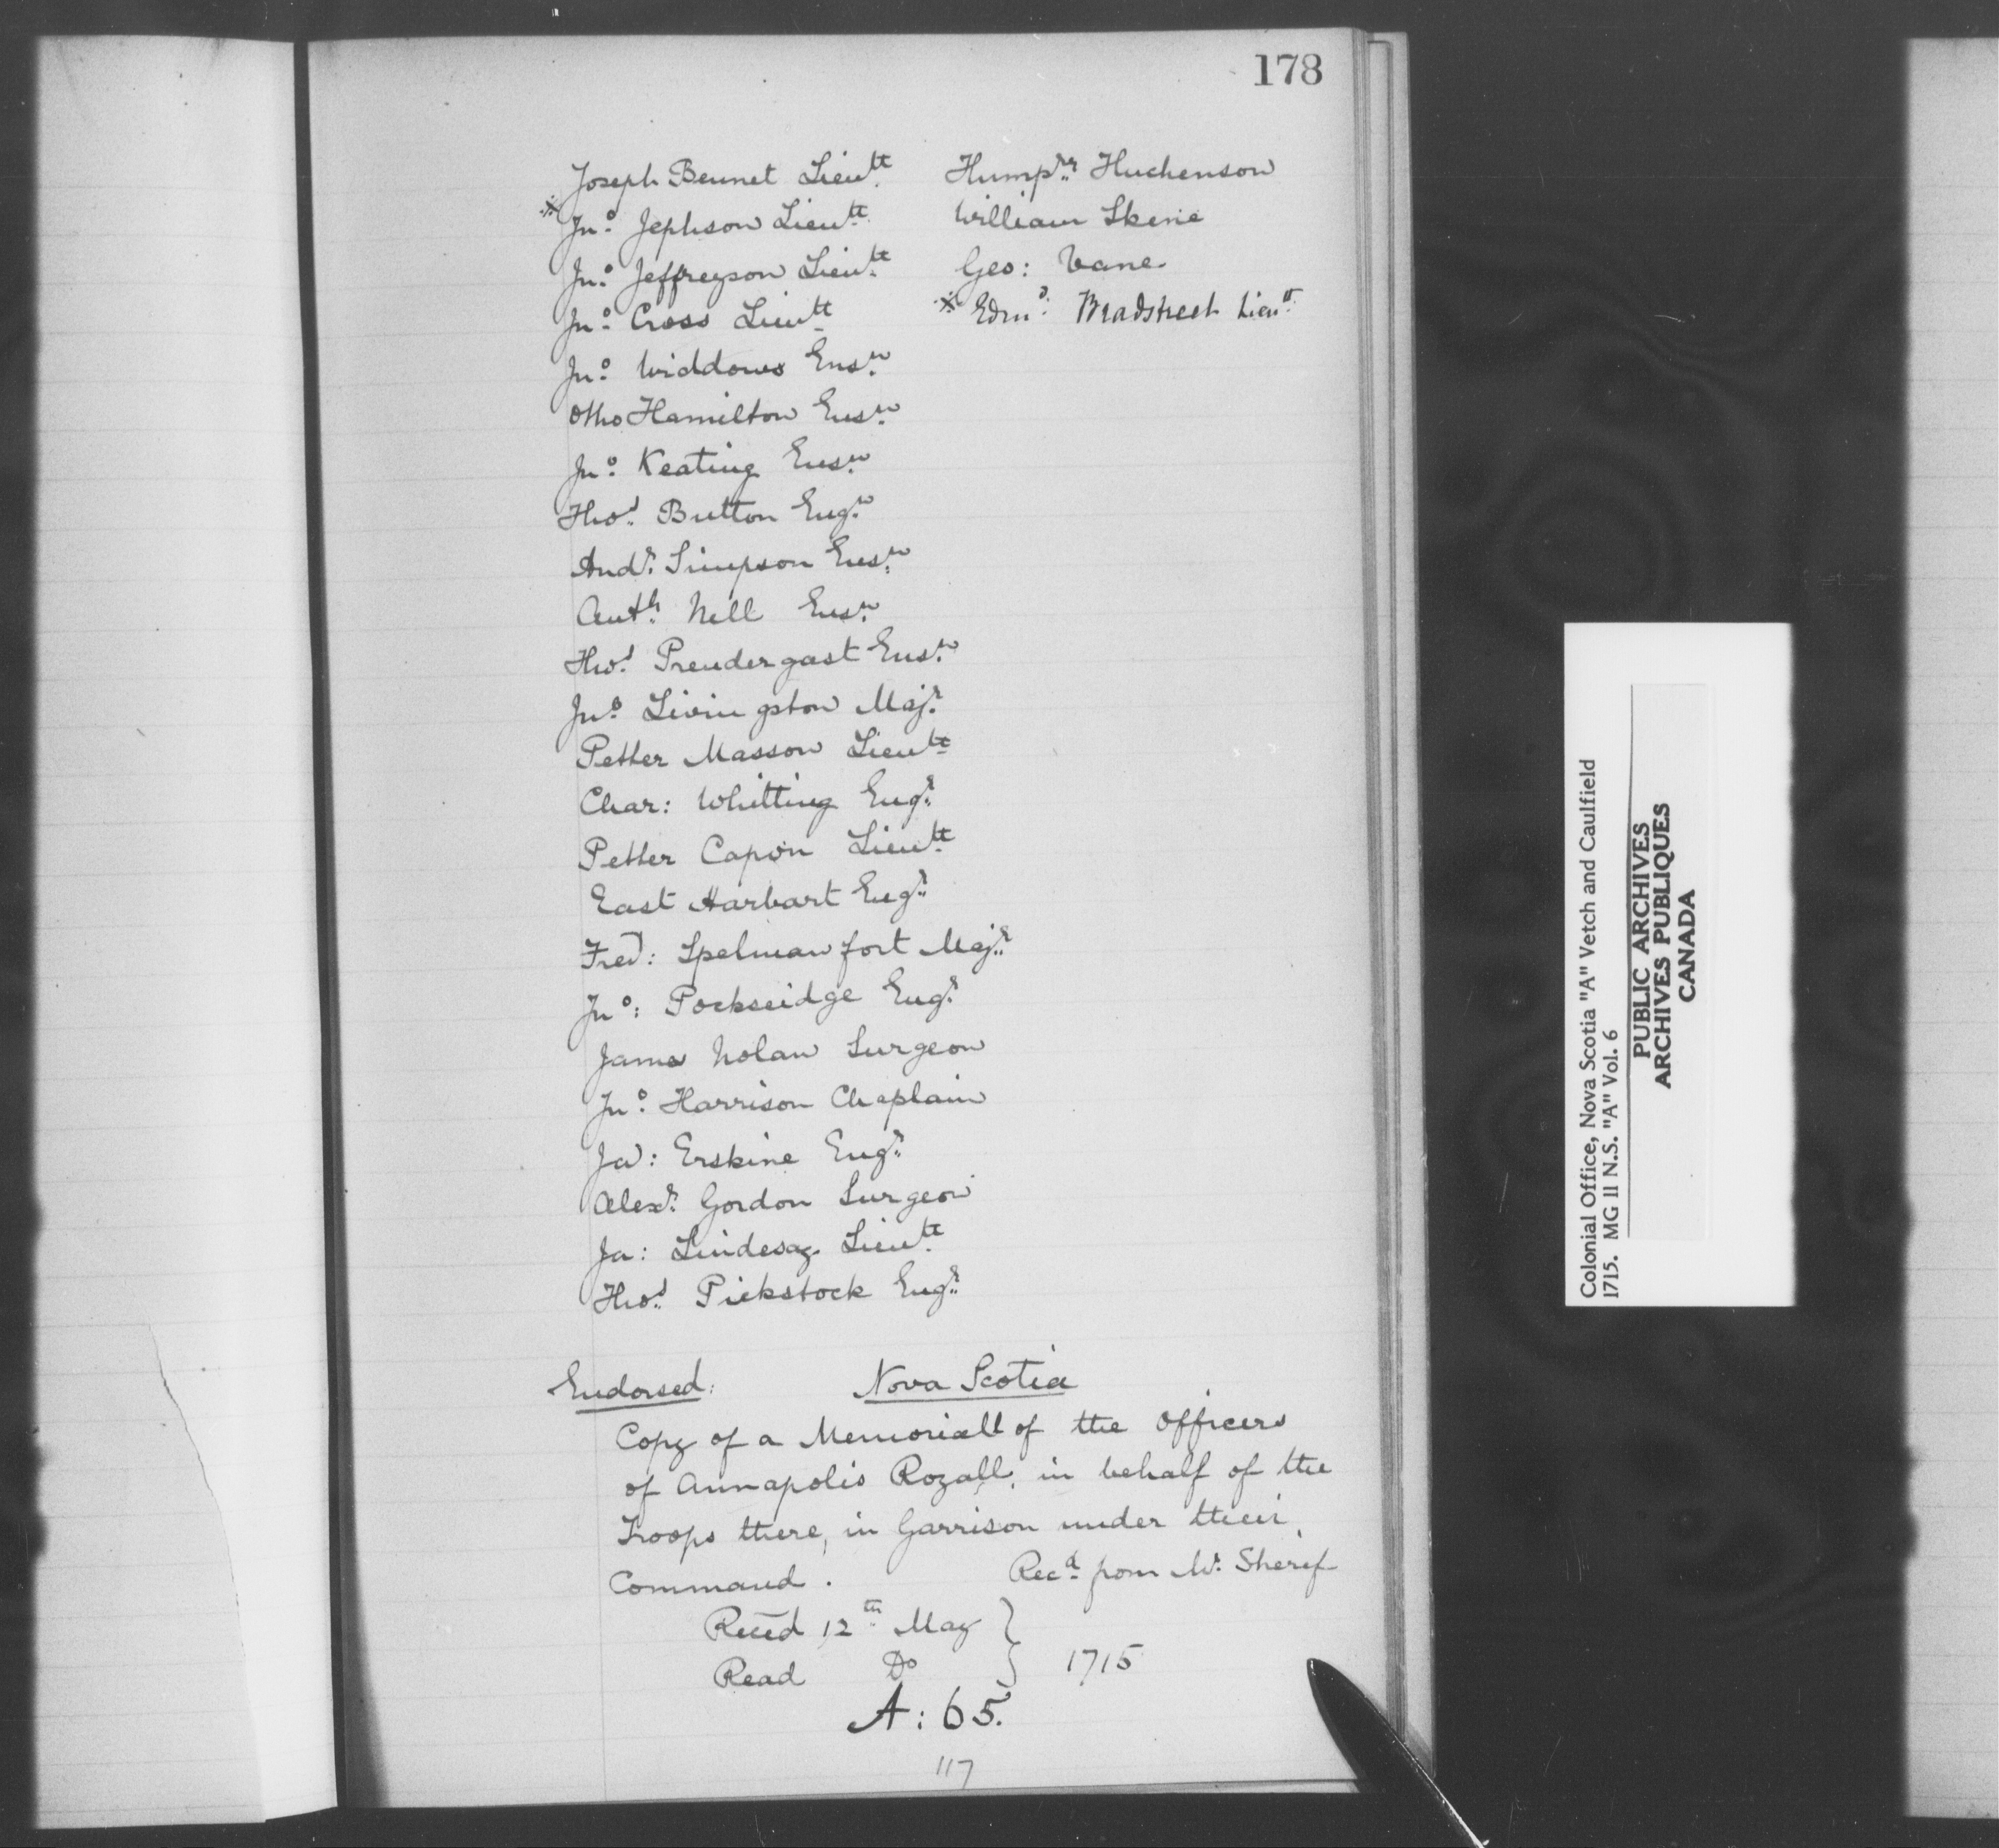 178
Joseph Bennet Lieutt.
Jno. Jephson Lieutt.
Jno. Jeffreyson Lieutt.
Jno. Cross Lieutt
Jno. Widdows Ensn.
Otho Hamilton Ensn.
Jno. Keating Ensn.
Thos. Button Engn.
Andr. Simpson Ensn.
Anth. Nell Ensn.
Thos. Prendergast Ensn.
Jno. Livingston Majr.
Petter Masson Lieutt
Char: Whitting Engr.
Petter Capon Lieutt
East Harbart Engr.
Fred: Spelman fort Majr.
Jno: Pockseidge Engr.
James Nolan Surgeon
Jno. Harrison Chaplain
Ja: Erskine Engr.
Alexr. Gordon Surgeon
Ja: Lindesay Lieutt.
Thos. Pickstock Engr.
Humpry. Huchenson
William Skene
Geo: Vane
Edmd. Bradstreet Lieutt.
Endorsed: Nova Scotia
Copy of a Memoriall of the Officers
of Annapolis Royall, in behalf of the
Troops there, in Garrison under their
Command. Recd. from Mr. Sherif
Recēd 12th. May
Read Do
1715
A: 65.
117
Colonial Office, Nova Scotia "A" Vetch and Caulfield
1715. MG 11 N.S. "A" Vol. 6
PUBLIC ARCHIVES
ARCHIVES PUBLIQUES
CANADA